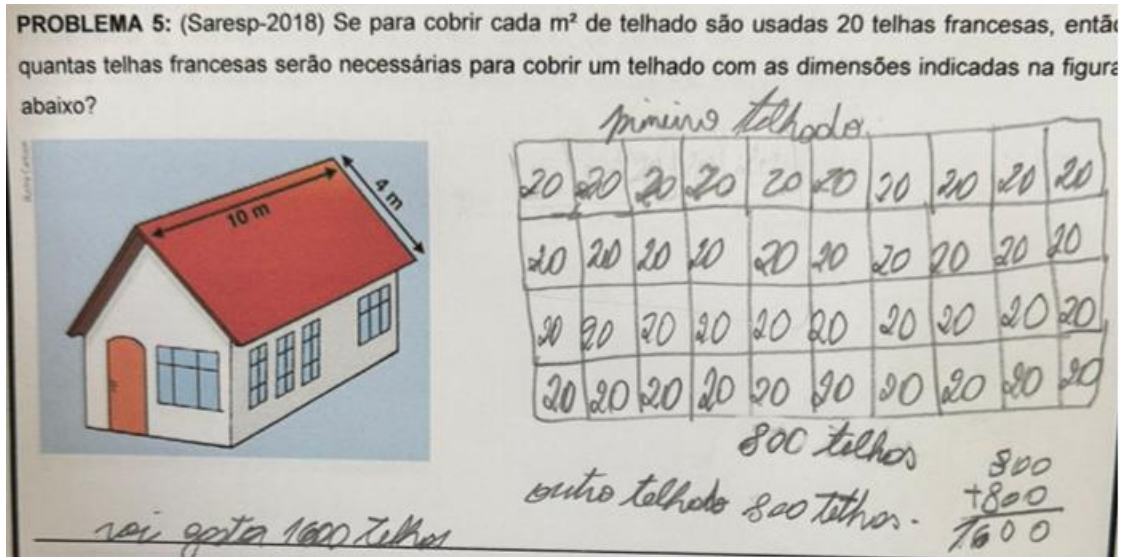 PROBLEMA 5: (Saresp-2018) Se para cobrir cada m² de telhado são usadas 20 telhas francesas, então
quantas telhas francesas serão necessárias para cobrir um telhado com as dimensões indicadas na figura
abaixo?
primeiro telhado
10 m
4 m
20 20 20 20 20 20 20 20 20 20
20 20 20 20 20 20 20 20 20 20
20 20 20 20 20 20 20 20 20 20
20 20 20 20 20 20 20 20 20 20
800 telhas
outro telhado 800 telhas.
800
+800
1600
vai gasta 1600 telhas